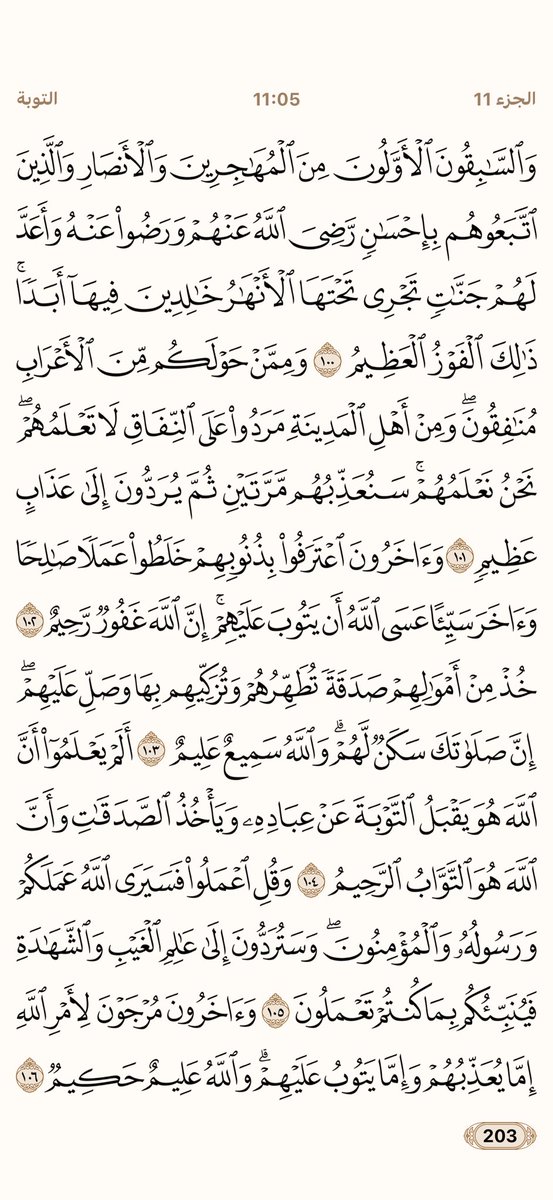 الجزء 11
11:05
التوبة
وَٱلسَّٰبِقُونَ ٱلْأَوَّلُونَ مِنَ ٱلْمُهَٰجِرِينَ وَٱلْأَنصَارِ وَٱلَّذِينَ
ٱتَّبَعُوهُم بِإِحْسَٰنٖ رَّضِيَ ٱللَّهُ عَنْهُمْ وَرَضُوا۟ عَنْهُ وَأَعَدَّ
لَهُمْ جَنَّٰتٖ تَجْرِي تَحْتَهَا ٱلْأَنْهَٰرُ خَٰلِدِينَ فِيهَآ أَبَدٗاۚ
ذَٰلِكَ ٱلْفَوْزُ ٱلْعَظِيمُ ١٠٠ وَمِمَّنْ حَوْلَكُم مِّنَ ٱلْأَعْرَابِ
مُنَٰفِقُونَۖ وَمِنْ أَهْلِ ٱلْمَدِينَةِ مَرَدُوا۟ عَلَى ٱلنِّفَاقِ لَا تَعْلَمُهُمْۖ
نَحْنُ نَعْلَمُهُمْۚ سَنُعَذِّبُهُم مَّرَّتَيْنِ ثُمَّ يُرَدُّونَ إِلَىٰ عَذَابٍ
عَظِيمٖ ١٠١ وَءَاخَرُونَ ٱعْتَرَفُوا۟ بِذُنُوبِهِمْ خَلَطُوا۟ عَمَلٗا صَٰلِحٗا
وَءَاخَرَ سَيِّئًا عَسَى ٱللَّهُ أَن يَتُوبَ عَلَيْهِمْۚ إِنَّ ٱللَّهَ غَفُورٞ رَّحِيمٌ ١٠٢
خُذْ مِنْ أَمْوَٰلِهِمْ صَدَقَةٗ تُطَهِّرُهُمْ وَتُزَكِّيهِم بِهَا وَصَلِّ عَلَيْهِمْۖ
إِنَّ صَلَوٰتَكَ سَكَنٞ لَّهُمْۗ وَٱللَّهُ سَمِيعٌ عَلِيمٌ ١٠٣ أَلَمْ يَعْلَمُوٓا۟ أَنَّ
ٱللَّهَ هُوَ يَقْبَلُ ٱلتَّوْبَةَ عَنْ عِبَادِهِۦ وَيَأْخُذُ ٱلصَّدَقَٰتِ وَأَنَّ
ٱللَّهَ هُوَ ٱلتَّوَّابُ ٱلرَّحِيمُ ١٠٤ وَقُلِ ٱعْمَلُوا۟ فَسَيَرَى ٱللَّهُ عَمَلَكُمْ
وَرَسُولُهُۥ وَٱلْمُؤْمِنُونَۖ وَسَتُرَدُّونَ إِلَىٰ عَٰلِمِ ٱلْغَيْبِ وَٱلشَّهَٰدَةِ
فَيُنَبِّئُكُم بِمَا كُنتُمْ تَعْمَلُونَ ١٠٥ وَءَاخَرُونَ مُرْجَوْنَ لِأَمْرِ ٱللَّهِ
إِمَّا يُعَذِّبُهُمْ وَإِمَّا يَتُوبُ عَلَيْهِمْۗ وَٱللَّهُ عَلِيمٌ حَكِيمٞ ١٠٦
203